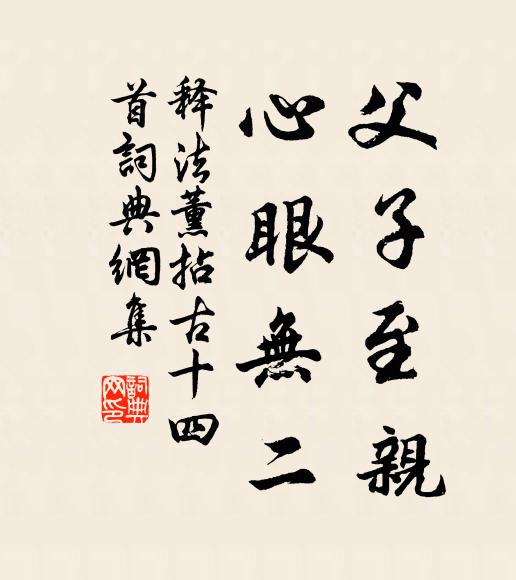 父子至親
心眼無二
释法薰拈古十四
首詞典網集
詞典
网印